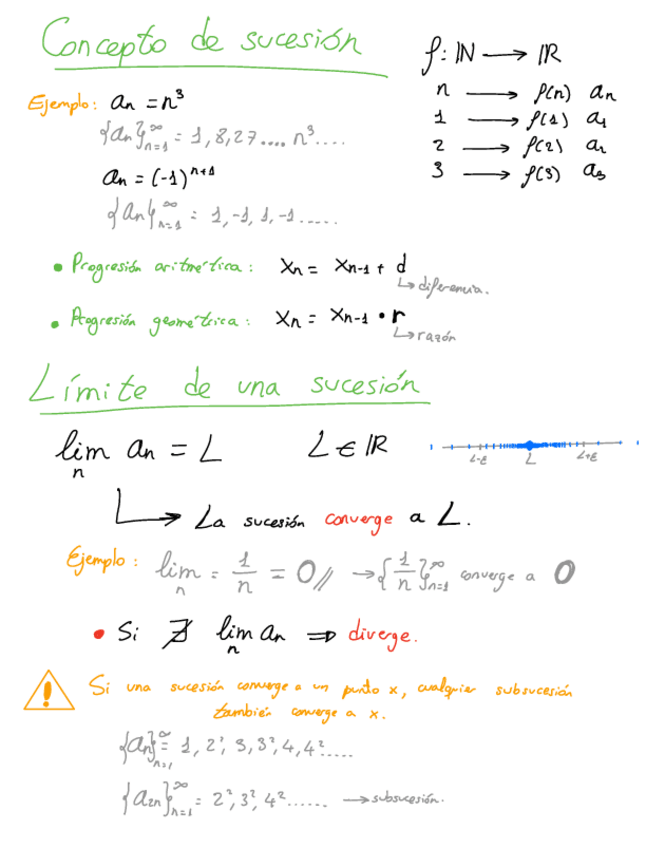 Concepto de sucesión
f: ℕ ⟶ ℝ
n ⟶ f(n) aₙ
1 ⟶ f(1) a₁
2 ⟶ f(2) a₂
3 ⟶ f(3) a₃
Ejemplo: aₙ = n³
{aₙ}ₙ₌₁^∞ = 1, 8, 27 .... n³ ....
aₙ = (-1)ⁿ⁺¹
{aₙ}ₙ₌₁^∞ = 1, -1, 1, -1 .....
• Progresión aritmética: xₙ = xₙ₋₁ + d
↳ diferencia.
• Progresión geométrica: xₙ = xₙ₋₁ • r
↳ razón
Límite de una sucesión
lim aₙ = L L ∈ ℝ
n
L-ε L L+ε
↳ La sucesión converge a L.
Ejemplo: lim = 1/n = 0// → {1/n}ₙ₌₁^∞ converge a 0
n
• Si ∄ lim aₙ ⇒ diverge.
n
! Si una sucesión converge a un punto x, cualquier subsucesión
también converge a x.
{aₙ}ₙ₌₁^∞ = 1, 2², 3, 3², 4, 4² .....
{a₂ₙ}ₙ₌₁^∞ = 2², 3², 4² ...... → subsucesión.